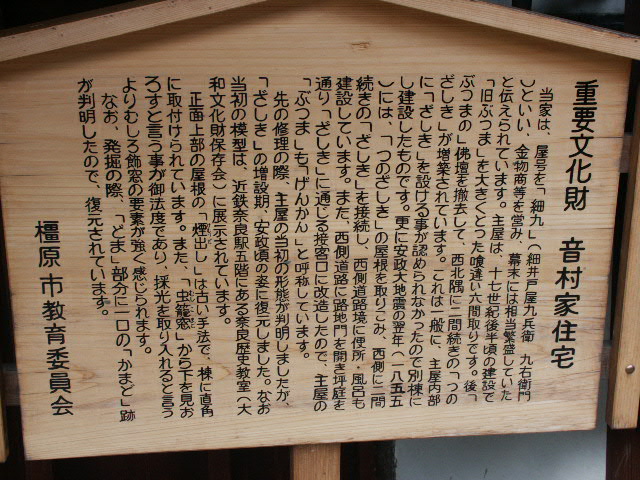 重要文化財 音村家住宅
当家は、屋号を「細九」（細井戸屋九兵衛 九右衛門
）といい、金物商等を営み、幕末には相当繁盛していた
と伝えられています。主屋は、十七世紀後半頃の建設で
「旧ぶつま」を大きくとった喰違い六間取りです。後「
ぶつまの」佛壇を撤去して、西北隅に二間続きの「つの
ざしき」が増築されています。これは一般に、主屋内部
に「ざしき」を設ける事が認められなかったので別棟に
し建設したものです。更に安政大地震の翌年（一八五五
）には、「つのざしき」の屋根を取りこみ、西側に二間
続きの「ざしき」を接続し、西側道路境に便所・風呂も
建設しています。また、西側道路に路地門を開き坪庭を
通り「ざしき」に通じる接客口に改造したので、主屋の
「ぶつま」も「げんかん」と呼称しています。
先の修理の際、主屋の当初の形態が判明しましたが、
「ざしき」の増設期、安政頃の姿に復元しました。なお
当初の模型は、近鉄奈良駅五階にある奈良歴史教室（大
和文化財保存会）に展示されています。
正面上部の屋根の「煙出し」は古い手法で、棟に直角
に取付けられています。また、「虫籠窓」から下を見お
ろすと言う事が御法度であり、採光を取り入れると言う
よりむしろ飾窓の要素が強く感じられます。
なお、発掘の際、「どま」部分に一口の「かまど」跡
が判明したので、復元されています。
橿原市教育委員会